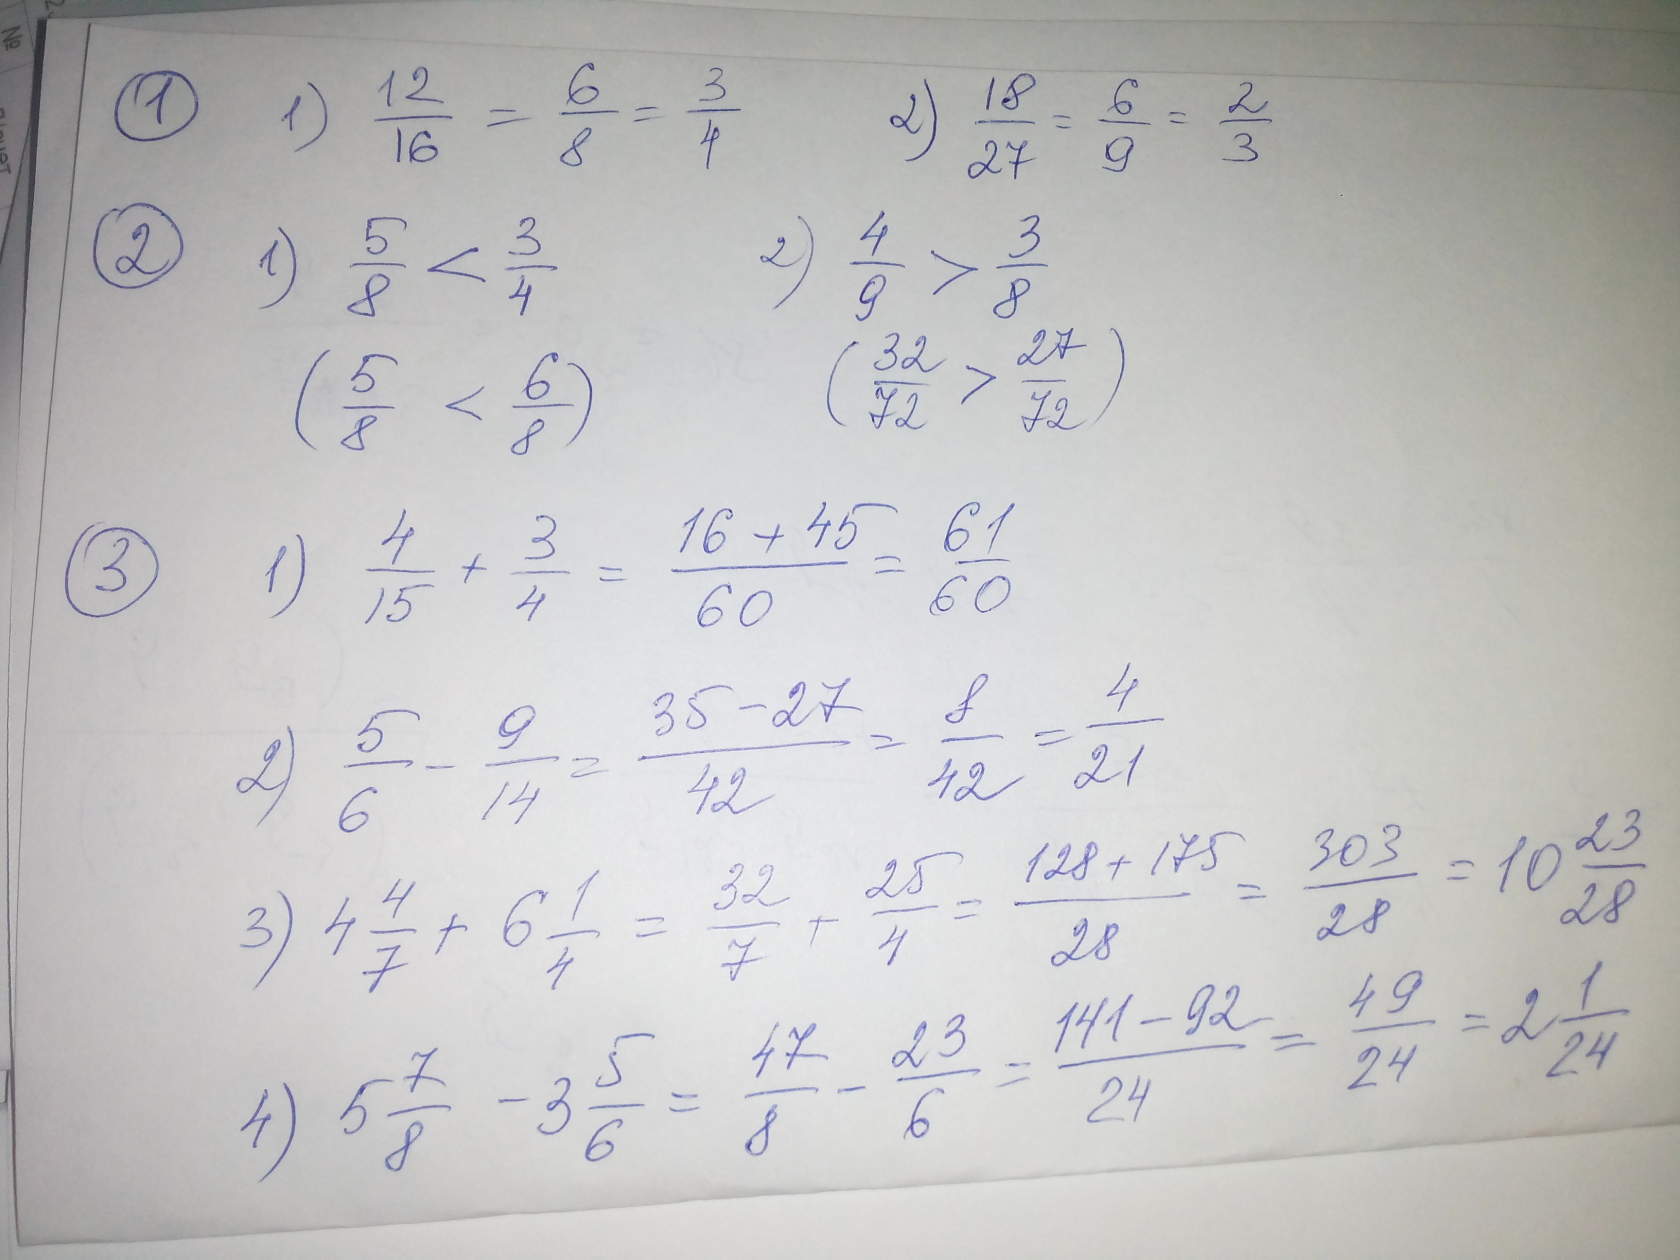 №
① 1) 12/16 = 6/8 = 3/4 2) 18/27 = 6/9 = 2/3
② 1) 5/8 < 3/4 2) 4/9 > 3/8
(5/8 < 6/8) (32/72 > 27/72)
③ 1) 4/15 + 3/4 = (16 + 45)/60 = 61/60
2) 5/6 - 9/14 = (35 - 27)/42 = 8/42 = 4/21
3) 4 4/7 + 6 1/4 = 32/7 + 25/4 = (128 + 175)/28 = 303/28 = 10 23/28
4) 5 7/8 - 3 5/6 = 47/8 - 23/6 = (141 - 92)/24 = 49/24 = 2 1/24